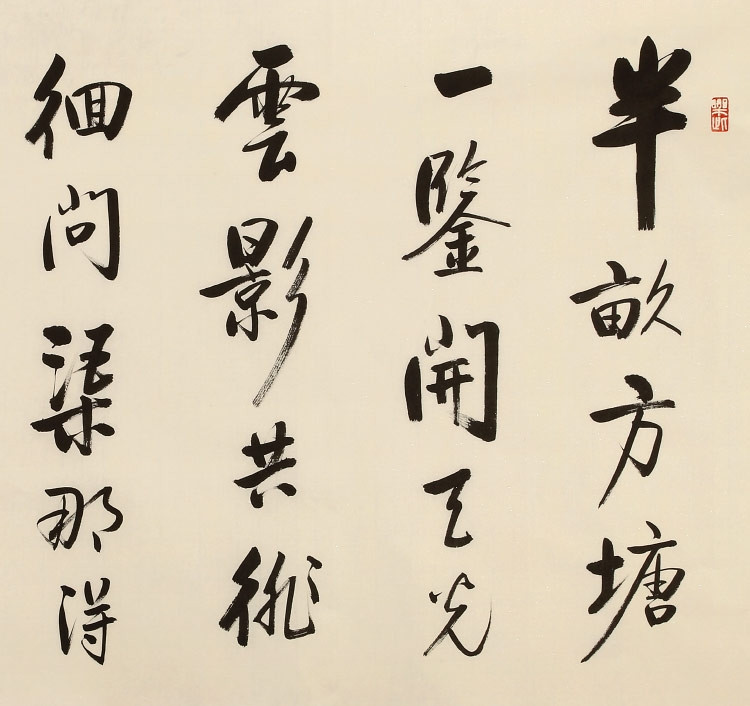 半畝方塘
一鑒開天光
雲影共徘
徊問渠那得